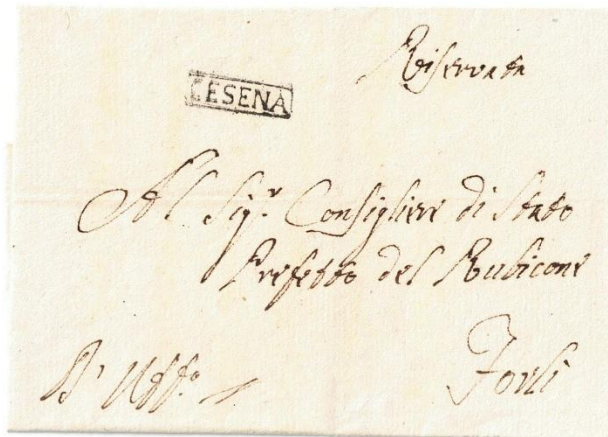 Riservata
CESENA
Al Sig.r Consigliere di Stato
Prefetto del Rubicone
D' Uff.o
Forlì